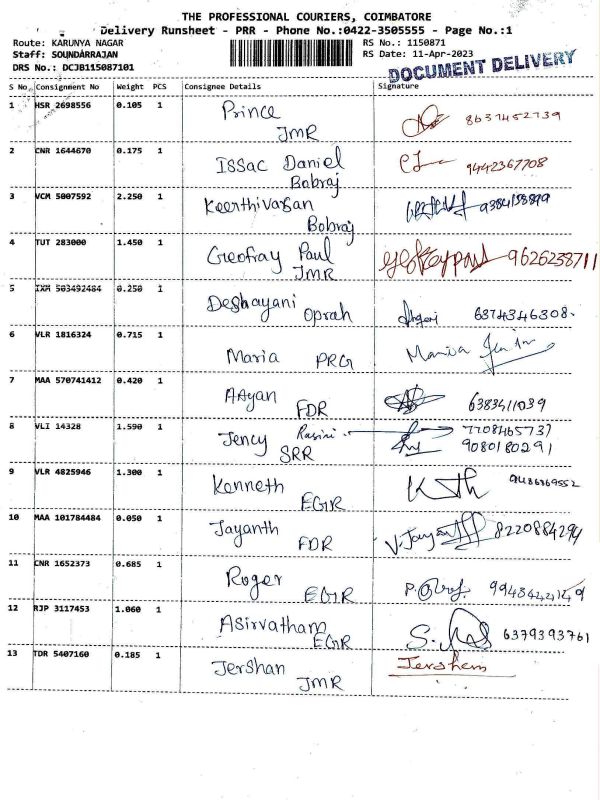 THE PROFESSIONAL COURIERS, COIMBATORE
Delivery Runsheet - PRR - Phone No.:0422-3505555 - Page No.:1
Route: KARUNYA NAGAR
RS No.: 1150871
Staff: SOUNDARRAJAN
RS Date: 11-Apr-2023
DRS No.: DCJB115087101
DOCUMENT DELIVERY
S No. Consignment No Weight PCS Consignee Details Signature
1 HSR 2698556 0.105 1 Prince
JMR
2 CNR 1644670 0.175 1 Issac Daniel 9442367708
Bobraj
3 VCM 5007592 2.250 1 Keerthivasan
Bobraj
4 TUT 283000 1.450 1 Geofray Paul 9626238711
JMR
5 IXM 503492484 0.250 1 Deshayani
Oprah 6374346308.
6 VLR 1816324 0.715 1 Maria PRG Maria
7 MAA 570741412 0.420 1 AAyan 6383411039
FDR
8 VLI 14328 1.590 1 Jency 7708465737
SRR 9080180291
9 VLR 4825946 1.300 1 Kenneth
EGR
10 MAA 101784484 0.050 1 Jayanth
FDR
11 CNR 1652373 0.685 1 Roger
EGR
12 RJP 3117453 1.060 1 Asirvatham 6379393761
EGR
13 TDR 5407160 0.185 1 Jershan Jershem
JMR